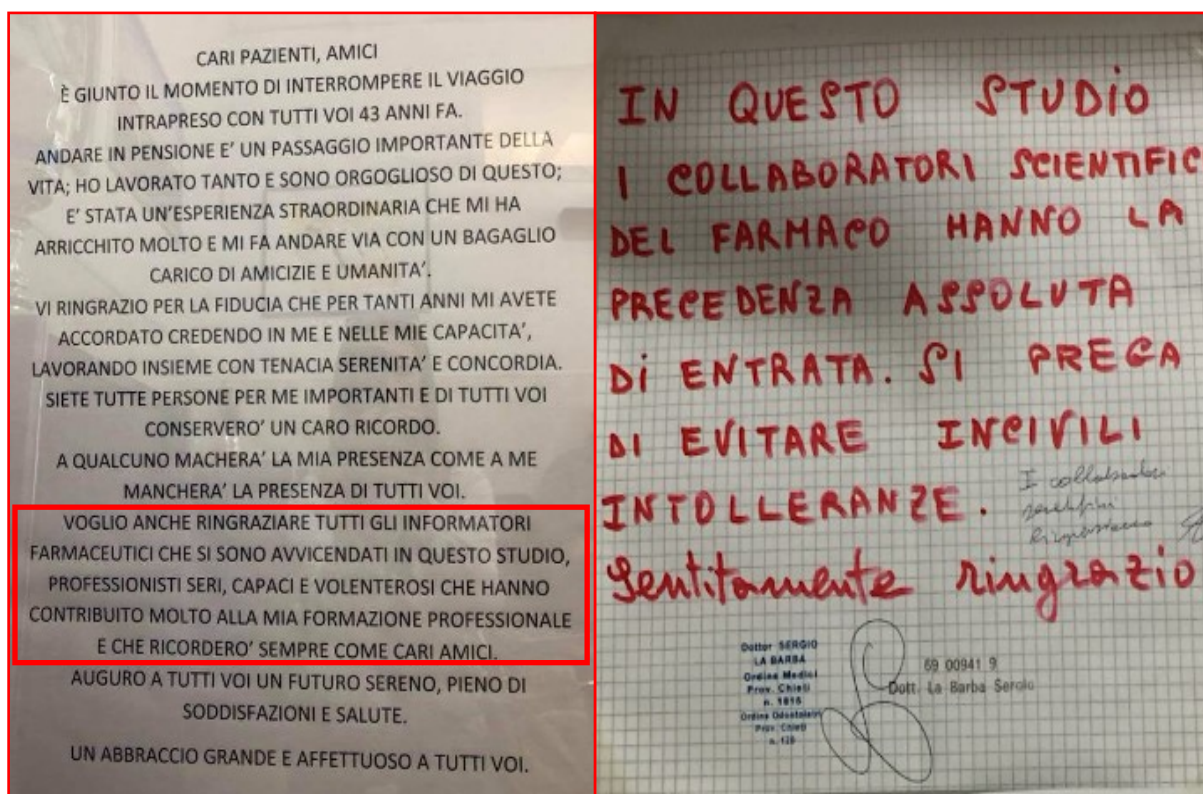 CARI PAZIENTI, AMICI
È GIUNTO IL MOMENTO DI INTERROMPERE IL VIAGGIO
INTRAPRESO CON TUTTI VOI 43 ANNI FA.
ANDARE IN PENSIONE E' UN PASSAGGIO IMPORTANTE DELLA
VITA; HO LAVORATO TANTO E SONO ORGOGLIOSO DI QUESTO;
E' STATA UN'ESPERIENZA STRAORDINARIA CHE MI HA
ARRICCHITO MOLTO E MI FA ANDARE VIA CON UN BAGAGLIO
CARICO DI AMICIZIE E UMANITA'.
VI RINGRAZIO PER LA FIDUCIA CHE PER TANTI ANNI MI AVETE
ACCORDATO CREDENDO IN ME E NELLE MIE CAPACITA',
LAVORANDO INSIEME CON TENACIA SERENITA' E CONCORDIA.
SIETE TUTTE PERSONE PER ME IMPORTANTI E DI TUTTI VOI
CONSERVERO' UN CARO RICORDO.
A QUALCUNO MACHERA' LA MIA PRESENZA COME A ME
MANCHERA' LA PRESENZA DI TUTTI VOI.
VOGLIO ANCHE RINGRAZIARE TUTTI GLI INFORMATORI
FARMACEUTICI CHE SI SONO AVVICENDATI IN QUESTO STUDIO,
PROFESSIONISTI SERI, CAPACI E VOLENTEROSI CHE HANNO
CONTRIBUITO MOLTO ALLA MIA FORMAZIONE PROFESSIONALE
E CHE RICORDERO' SEMPRE COME CARI AMICI.
AUGURO A TUTTI VOI UN FUTURO SERENO, PIENO DI
SODDISFAZIONI E SALUTE.
UN ABBRACCIO GRANDE E AFFETTUOSO A TUTTI VOI.
IN QUESTO STUDIO
I COLLABORATORI SCIENTIFIC
DEL FARMACO HANNO LA
PRECEDENZA ASSOLUTA
DI ENTRATA. SI PREGA
DI EVITARE INCIVILI
INTOLLERANZE.
I collaboratori
Sentitamente ringrazio
Dottor SERGIO
LA BARBA
Ordine Medici
Prov. Chieti
n. 1815
Ordine Odontoiatri
Prov. Chieti
69 00941 9
Dott. La Barba Sergio